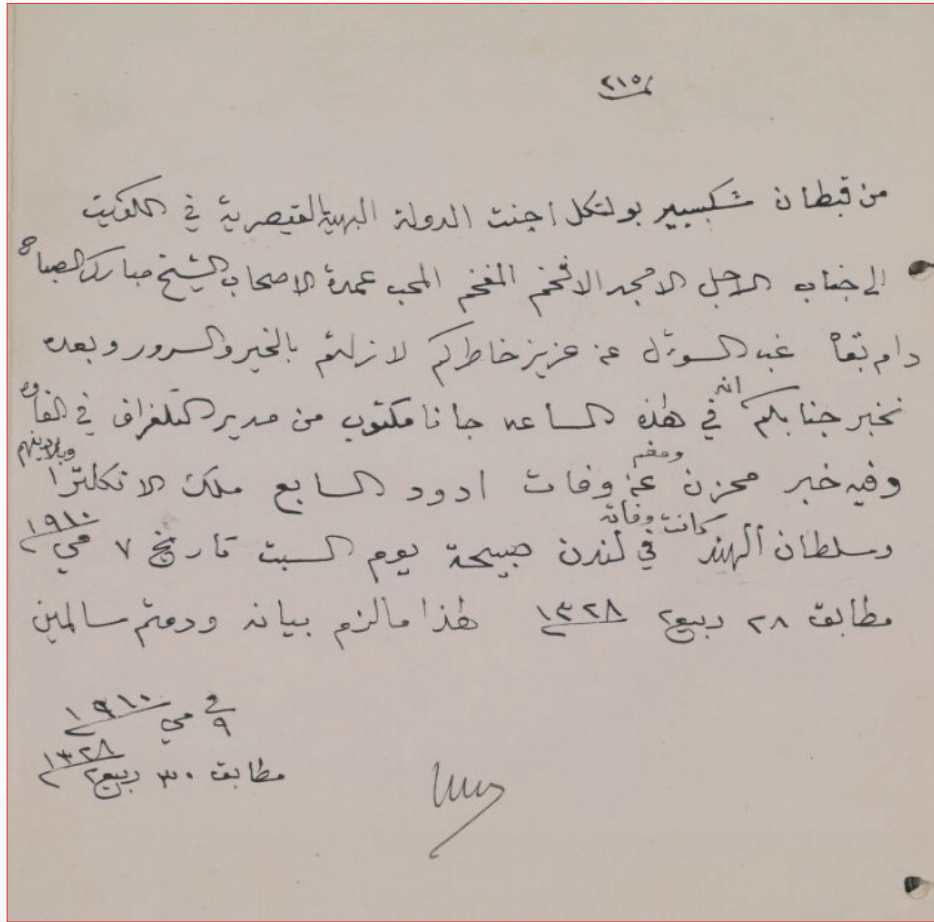 ٢١٥
من قبطان شكسبير بولتكل اجنت الدولة البهية القيصرية في الكويت
الى جناب الاجل الامجد الافخم المفخم المحب عمدة الاصحاب الشيخ مبارك الصباح
دام بقاه غب السؤال عن عزيز خاطركم لازلتم بالخير والسرور وبعده
نخبر جنابكم انه في هذه الساعه جانا مكتوب من مدير التلغراف في الفاو
وفيه خبر محزن ومغم عن وفات ادود السابع ملك الانكلترا
وسلطان الهند كانت وفاته في لندن صبيحة يوم السبت تاريخ ٧ مي ١٩١٠
مطابق ٢٨ ربيع٢ ١٣٢٨ هذا مالزم بيانه ودمتم سالمين
في ٩ مي ١٩١٠
مطابق ٣٠ ربيع٢ ١٣٢٨